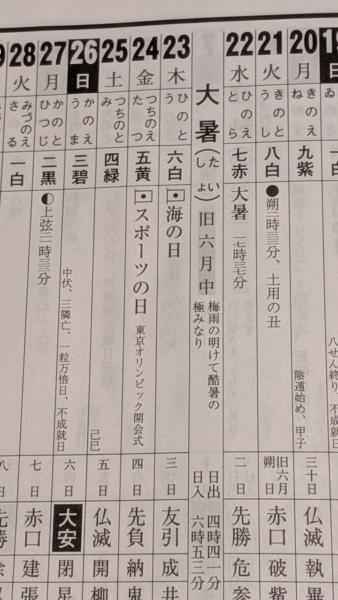 19
日
八せん終り、不成就日
20
月
きのえ
ね
九紫
陰遁始め、甲子
三十日
仏滅
執
21
火
きのと
うし
八白
●朔二時三三分、土用の丑
旧六月朔日
赤口
破
22
水
ひのえ
とら
七赤
大暑 一七時三七分
二日
先勝
危
参
大暑(たいしょ) 旧六月中
梅雨の明けて酷暑の
極みなり
日出 四時四一分
日入 六時五三分
23
木
ひのと
う
六白
海の日
三日
友引
成
井
24
金
つちのえ
たつ
五黄
スポーツの日 東京オリンピック開会式
四日
先負
納
鬼
25
土
つちのと
み
四緑
己巳
五日
仏滅
開
柳
26
日
かのえ
うま
三碧
中伏、三隣亡、一粒万倍日、不成就日
六日
大安
閉
27
月
かのと
ひつじ
二黒
上弦二時三三分
七日
赤口
建
張
28
火
みづのえ
さる
一白
八日
先勝
除